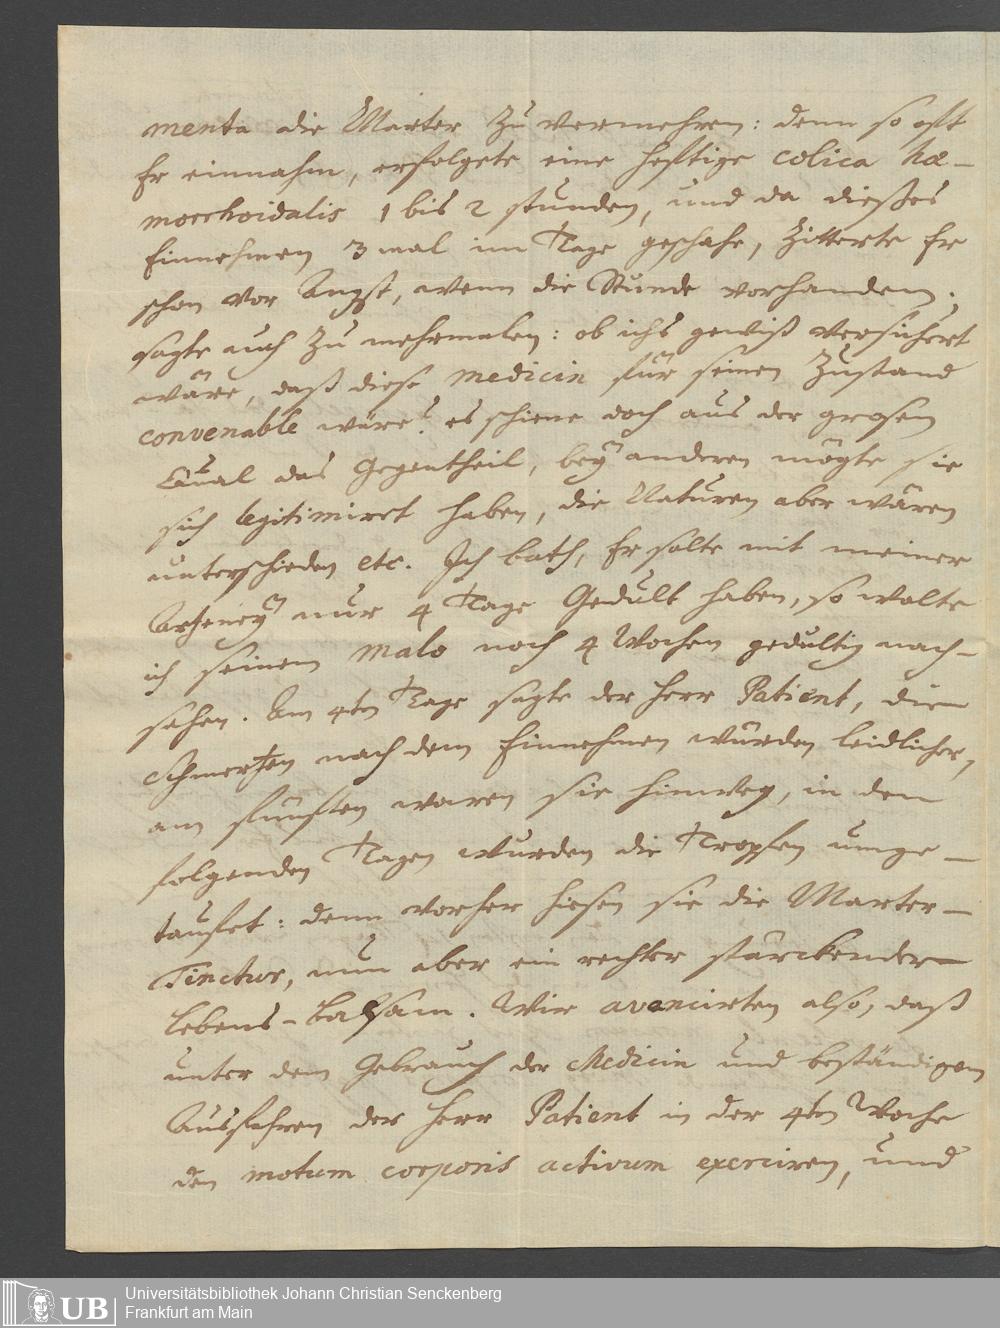 menta die Marter zu vermehren: denn so oft
Er einnahm, erfolgete eine hefftige colica hae-
morrhoidalis 1 bis 2 stunden, und da dießes
Einnehmen 3 mal im Tage geschahe, zitterte Er
schon vor Angst, wenn die Stunde vorhanden;
sagte auch zu mehrmalen: ob ichs gewiß versichert
wäre, daß diese medicin für seinen Zustand
convenable wäre? es schiene doch aus der grosen
Quaal das Gegentheil, beÿ anderen mögte sie
sich legitimiret haben, die Naturen aber wären
unterschieden etc. Ich bath, Er solte mit meiner
Artzeneÿ nur 4 Tage Gedult haben, so wolte
ich seinem malo noch 4 Wochen gedultig nach-
sehen. Am 4ten Tage sagte der Herr Patient, die
Schmertzen nach dem Einnehmen würden leidlicher,
am fünften waren sie hinweg, in den
folgenden Tagen wurden die Tropfen umge-
taufet: denn vorher hiesen sie die Marter-
Tinctur, nun aber ein rechter stärckender
Lebens-Balsam. Wir avancirten also, daß
unter dem Gebrauch der Medicin und beständigen
Ausfahren der Herr Patient in der 4ten Woche
den motum corporis activum exerciren, und
Universitätsbibliothek Johann Christian Senckenberg
UB Frankfurt am Main